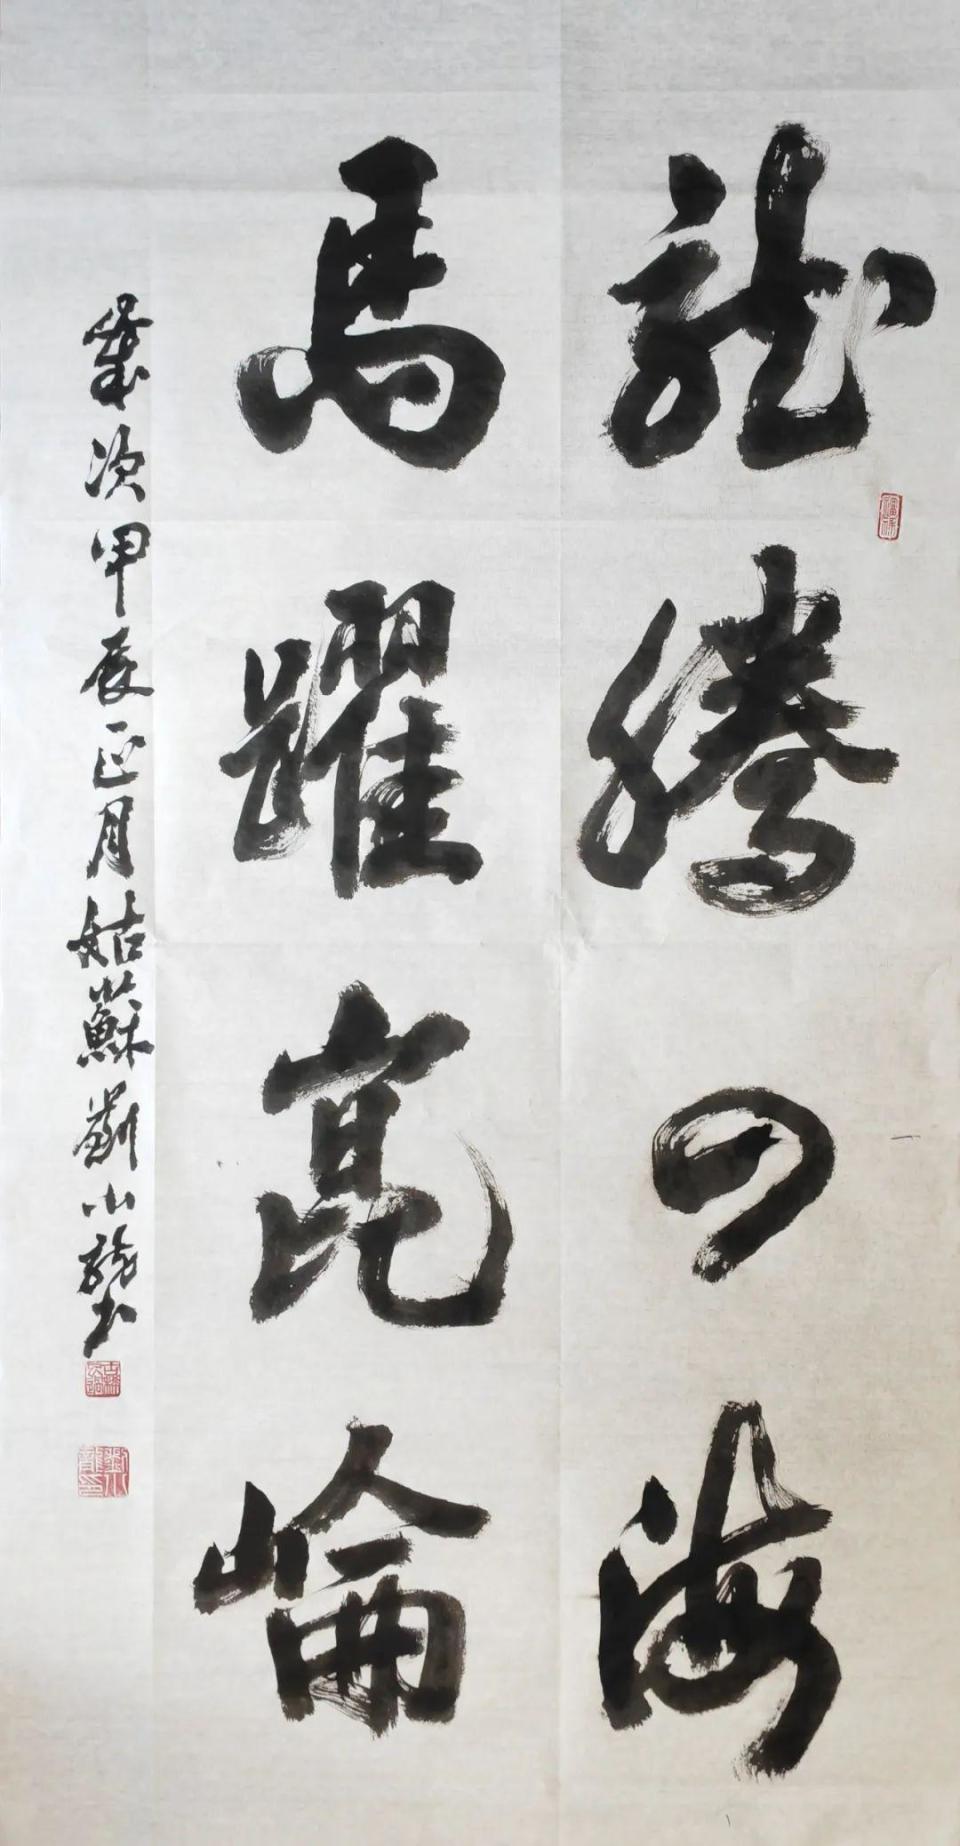 龍騰四海
馬躍崑崙
歲次甲辰正月姑蘇劉小龍書